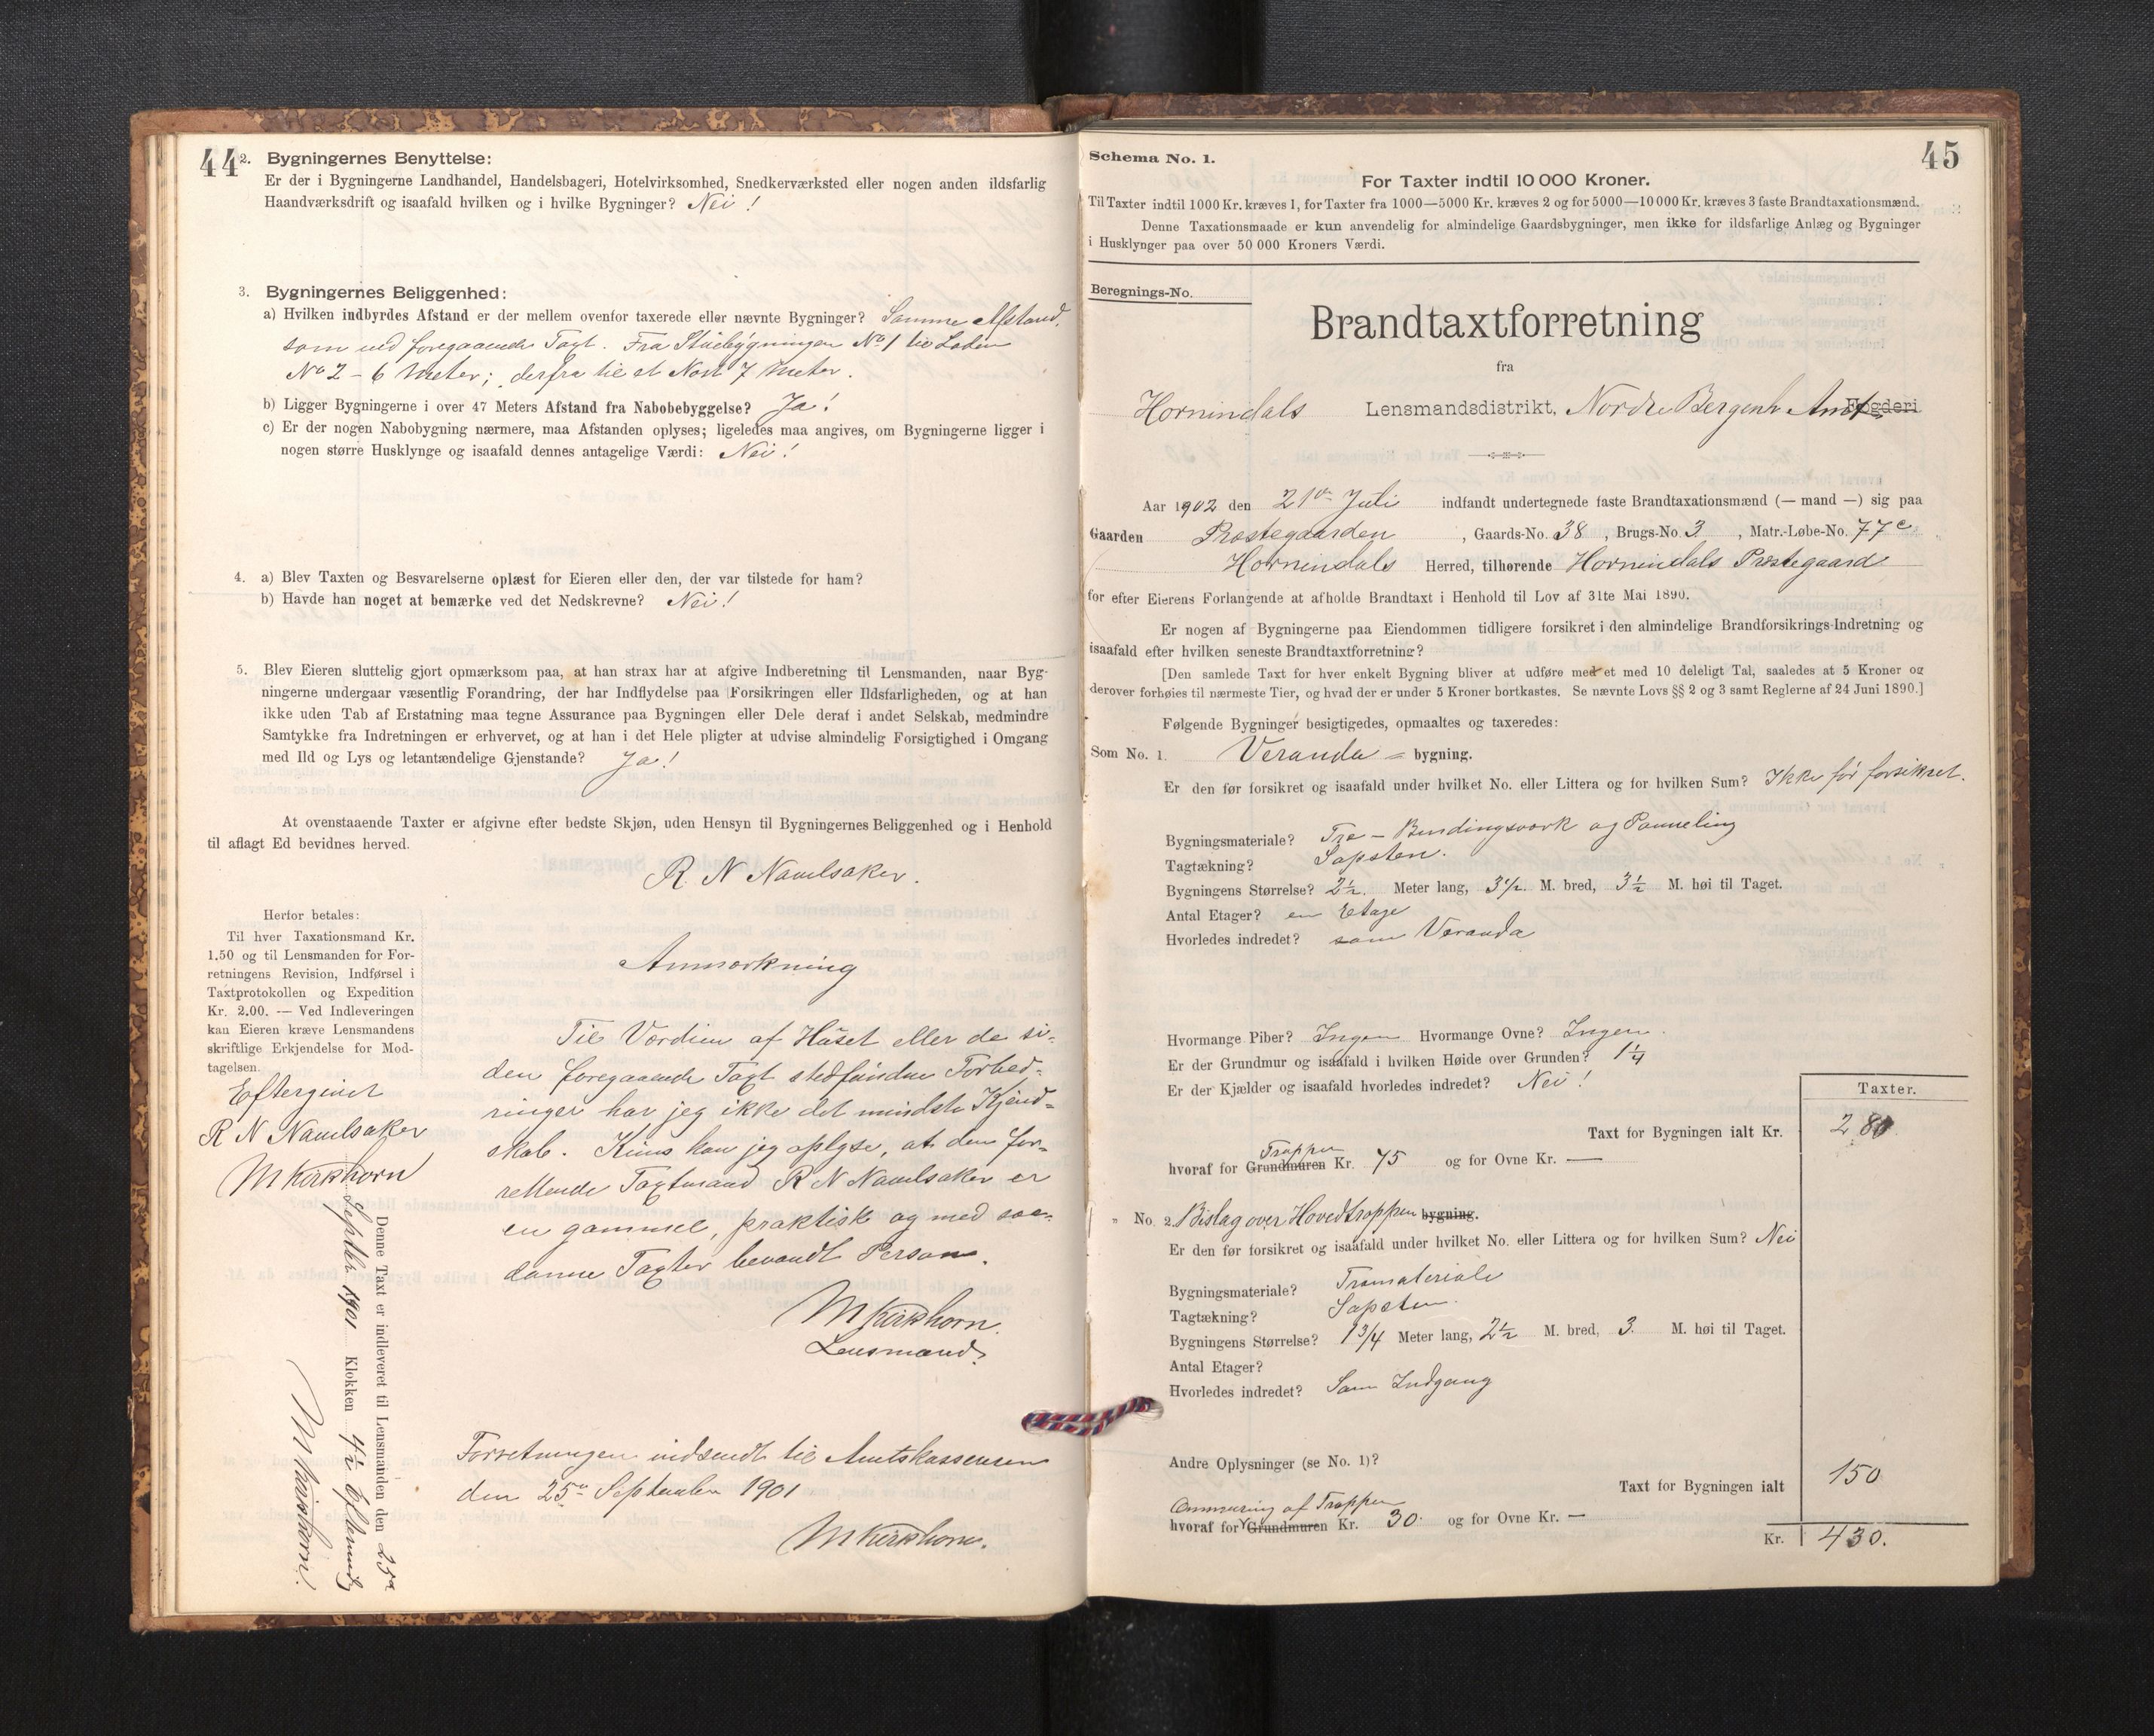 44
2. Bygningernes Benyttelse:
Er der i Bygningerne Landhandel, Handelsbageri, Hotelvirksomhed, Snedkerværksted eller nogen anden ildsfarlig
Haandværksdrift og isaafald hvilken og i hvilke Bygninger? Nei!
3. Bygningernes Beliggenhed:
a) Hvilken indbyrdes Afstand er der mellem ovenfor taxerede eller nævnte Bygninger? Samme Afstand,
som ved foregaaende Taxt. Fra Stuebygningen No 1 til Laden
No 2 – 6 Meter; derfra til et Nost 7 Meter.
b) Ligger Bygningerne i over 47 Meters Afstand fra Nabobebyggelse? Ja!
c) Er der nogen Nabobygning nærmere, maa Afstanden oplyses; ligeledes maa angives, om Bygningerne ligger i
nogen større Husklynge og isaafald dennes antagelige Værdi: Nei!
4. a) Blev Taxten og Besvarelserne oplæst for Eieren eller den, der var tilstede for ham?
b) Havde han noget at bemærke ved det Nedskrevne? Nei!
5. Blev Eieren sluttelig gjort opmærksom paa, at han strax har at afgive Indberetning til Lensmanden, naar Byg-
ningerne undergaar væsentlig Forandring, der har Indflydelse paa Forsikringen eller Ildsfarligheden, og at han
ikke uden Tab af Erstatning maa tegne Assurance paa Bygningen eller Dele deraf i andet Selskab, medmindre
Samtykke fra Indretningen er erhvervet, og at han i det Hele pligter at udvise almindelig Forsigtighed i Omgang
med Ild og Lys og letantændelige Gjenstande? Ja!
At ovenstaaende Taxter er afgivne efter bedste Skjøn, uden Hensyn til Bygningernes Beliggenhed og i Henhold
til aflagt Ed bevidnes herved.
R. N Navelsaker.
Herfor betales:
Til hver Taxationsmand Kr.
1.50 og til Lensmanden for For-
retningens Revision, Indførsel i
Taxtprotokollen og Expedition
Kr. 2.00. — Ved Indleveringen
kan Eieren kræve Lensmandens
skriftlige Erkjendelse for Mod-
tagelsen.
Eftergivet
R N Navelsaker
M Kirkhorn
Denne Taxt er indleveret til Lensmanden den 25de
Septbr. 1901 Klokken 4½ Eftermid
M Kirkhorn.
Anmærkning
Til Værdien af Huset eller de si-
den foregaaende Taxt stedfundne Forbed-
ringer har jeg ikke det mindste Kjend-
skab. Kuns kan jeg oplyse, at den for-
rettende Taxtmand R N Navelsaker er
en gammel, praktisk og med saa-
danne Taxter bevandt Person.
M Kirkhorn.
Lensmand.
Forretningen indsendt til Amtskassereren
den 25de September 1901
M Kirkhorn.
45
Schema No. 1.
For Taxter indtil 10 000 Kroner.
Til Taxter indtil 1000 Kr. kræves 1, for Taxter fra 1000—5000 Kr. kræves 2 og for 5000—10 000 Kr. kræves 3 faste Brandtaxationsmænd.
Denne Taxationsmaade er kun anvendelig for almindelige Gaardsbygninger, men ikke for ildsfarlige Anlæg og Bygninger
i Husklynger paa over 50 000 Kroners Værdi.
Beregnings-No.
Brandtaxtforretning
fra
Hornindals Lensmandsdistrikt, Nordre Bergenh Amt Fogderi
Aar 1902 den 21de Juli indfandt undertegnede faste Brandtaxationsmænd (— mand —) sig paa
Gaarden Præstegaarden, Gaards-No. 38, Brugs-No. 3, Matr.-Løbe-No. 77c
Hornindals Herred, tilhørende Hornindals Præstegaard
for efter Eierens Forlangende at afholde Brandtaxt i Henhold til Lov af 31te Mai 1890.
Er nogen af Bygningerne paa Eiendommen tidligere forsikret i den almindelige Brandforsikrings-Indretning og
isaafald efter hvilken seneste Brandtaxtforretning?
[Den samlede Taxt for hver enkelt Bygning bliver at udføre med et med 10 deleligt Tal, saaledes at 5 Kroner og
derover forhøies til nærmeste Tier, og hvad der er under 5 Kroner bortkastes. Se nævnte Lovs §§ 2 og 3 samt Reglerne af 24 Juni 1890.]
Følgende Bygninger besigtigedes, opmaaltes og taxeredes:
Som No. 1. Veranda = bygning.
Er den før forsikret og isaafald under hvilket No. eller Littera og for hvilken Sum? Ikke før forsikret.
Bygningsmateriale? Træ – Bindingsværk og Panneling
Tagtækning? Tagsten.
Bygningens Størrelse? 2½. Meter lang, 3½ M. bred, 3½ M. høi til Taget.
Antal Etager? en Etage
Hvorledes indredet? som Veranda
Hvormange Piber? Ingen Hvormange Ovne? Ingen.
Er der Grundmur og isaafald i hvilken Høide over Grunden? 1¼
Er der Kjælder og isaafald hvorledes indredet? Nei!
Taxter.
Taxt for Bygningen ialt Kr. 280
Trappen
hvoraf for Grundmuren Kr. 75 og for Ovne Kr. —
" No. 2. Bislag over Hovedtrappen bygning.
Er den før forsikret og isaafald under hvilket No. eller Littera og for hvilken Sum? Nei
Bygningsmateriale? Træmateriale
Tagtækning? Tagsten.
Bygningens Størrelse? 1 3/4 Meter lang, 2½ M. bred, 3. M. høi til Taget.
Antal Etager?
Hvorledes indredet? Som Indgang
Andre Oplysninger (se No. 1)?
Taxt for Bygningen ialt 150
Ommuring af Trappen
hvoraf for Grundmuren Kr. 30. og for Ovne Kr. —
Kr. 430.